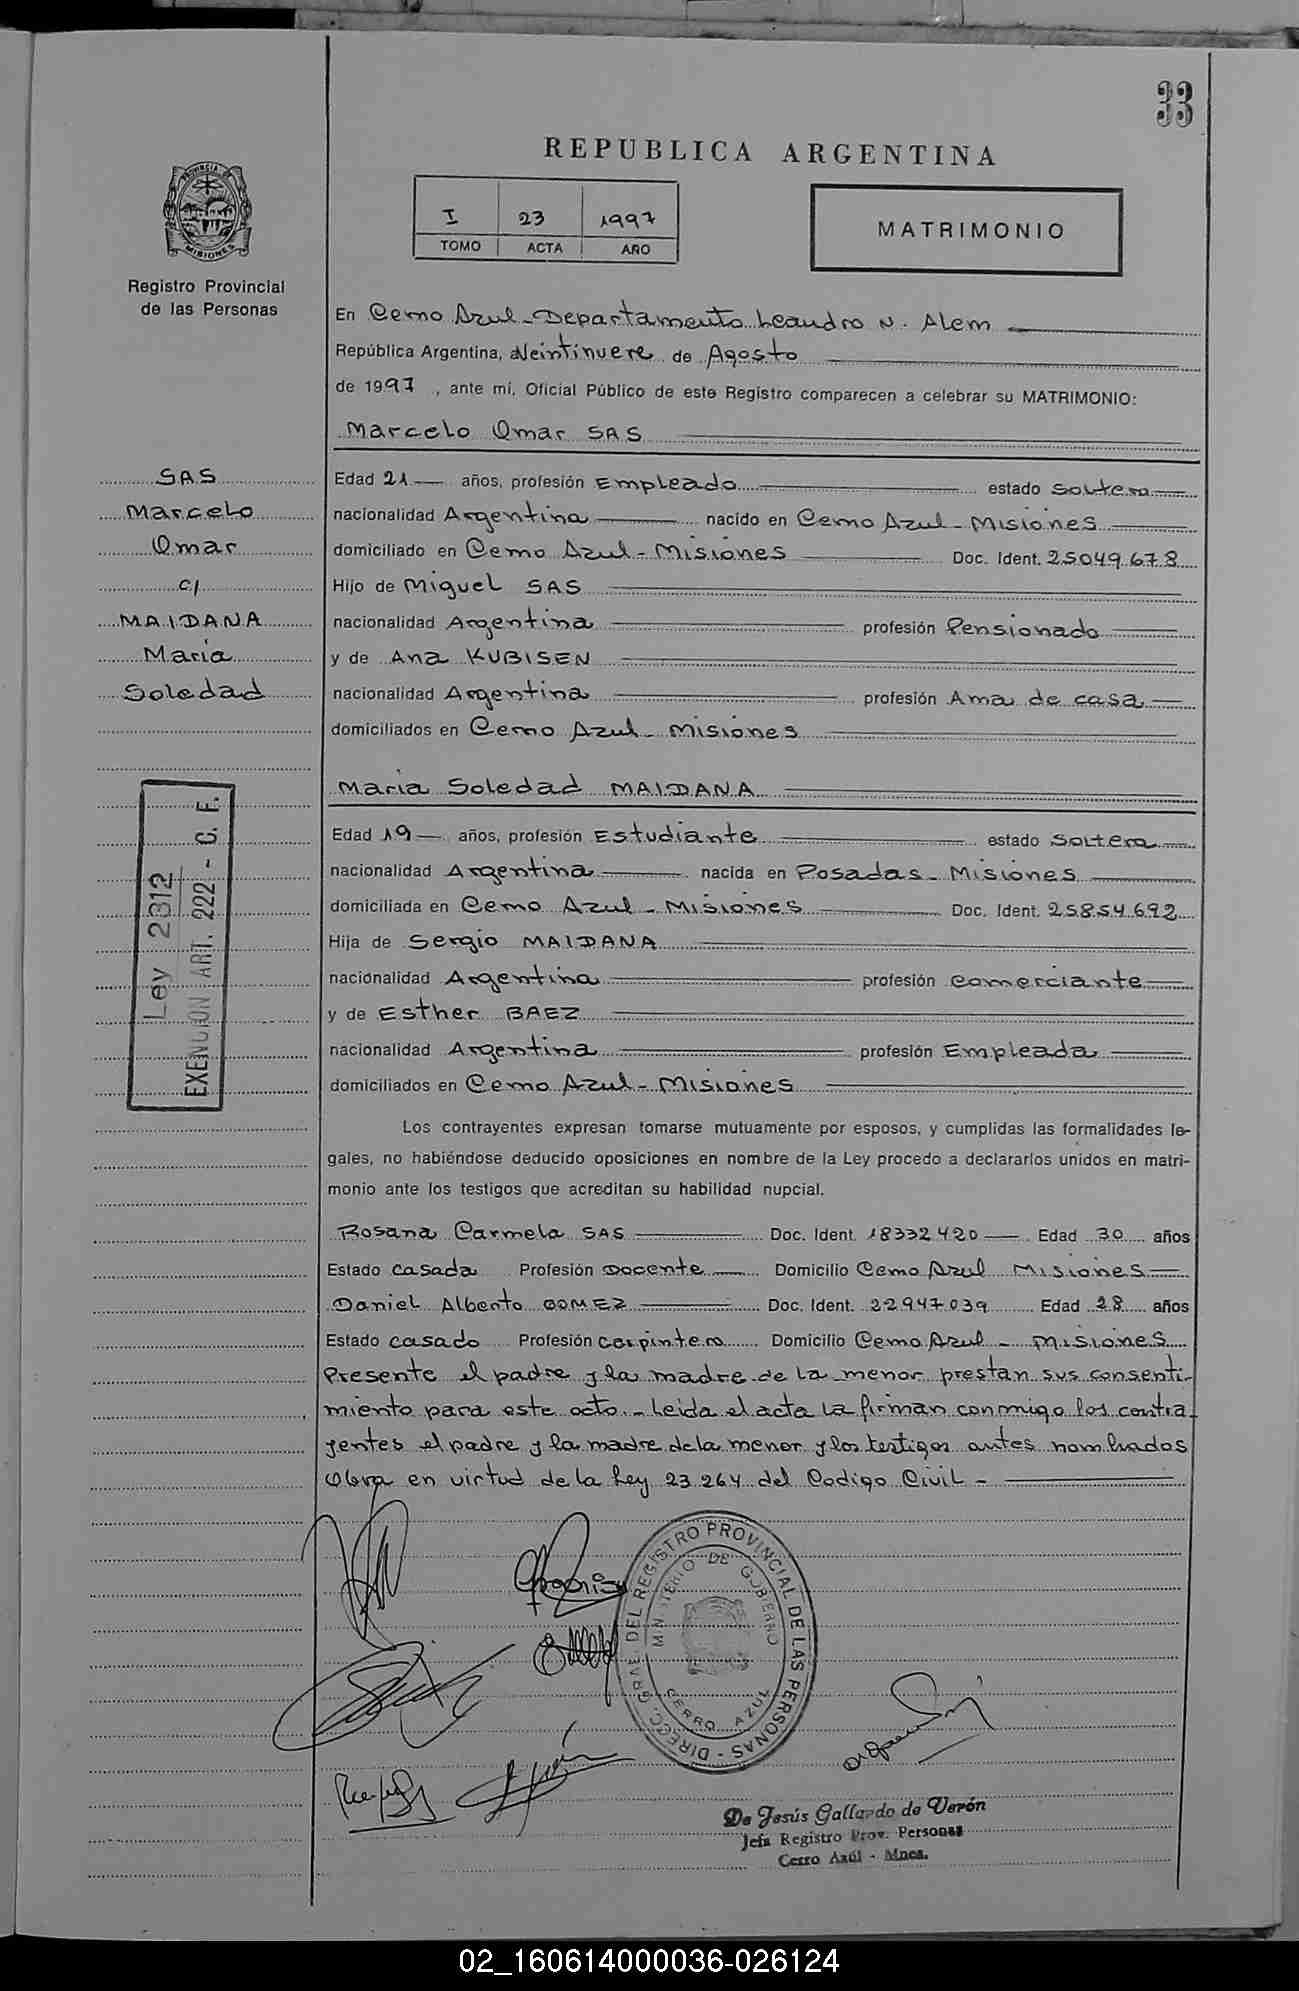 33
REPUBLICA ARGENTINA
I 23 1997
TOMO ACTA AÑO
MATRIMONIO
PROVINCIA DE
MISIONES
Registro Provincial
de las Personas
En Cerro Azul - Departamento Leandro N. Alem
República Argentina, Veintinueve de Agosto
de 1997, ante mí, Oficial Público de este Registro comparecen a celebrar su MATRIMONIO:
Marcelo Omar SAS
SAS
Marcelo
Omar
c/
MAIDANA
Maria
Soledad
Edad 21 años, profesión Empleado estado Soltero
nacionalidad Argentina nacido en Cerro Azul - Misiones
domiciliado en Cerro Azul - Misiones Doc. Ident. 25049.678
Hijo de Miguel SAS
nacionalidad Argentina profesión Pensionado
y de Ana KUBISEN
nacionalidad Argentina profesión Ama de casa
domiciliados en Cerro Azul - Misiones
Maria Soledad MAIDANA
Ley 2312
EXENCION ART. 222 - C. F.
Edad 19 años, profesión Estudiante estado Soltera
nacionalidad Argentina nacida en Posadas - Misiones
domiciliada en Cerro Azul - Misiones Doc. Ident. 25.854.692
Hija de Sergio MAIDANA
nacionalidad Argentina profesión comerciante
y de Esther BAEZ
nacionalidad Argentina profesión Empleada
domiciliados en Cerro Azul - Misiones
Los contrayentes expresan tomarse mutuamente por esposos, y cumplidas las formalidades le-
gales, no habiéndose deducido oposiciones en nombre de la Ley procedo a declararlos unidos en matri-
monio ante los testigos que acreditan su habilidad nupcial.
Rosana Carmela SAS Doc. Ident. 18332420 Edad 30 años
Estado casada Profesión Docente Domicilio Cerro Azul Misiones
Daniel Alberto GOMEZ Doc. Ident. 22947039 Edad 28 años
Estado casado Profesión carpintero Domicilio Cerro Azul - Misiones
Presente el padre y la madre de la menor prestan sus consenti-
miento para este acto. - Leida el acta la firman conmigo los contra
yentes el padre y la madre de la menor y los testigos antes nombrados
Obra en virtud de la Ley 23.264 del Codigo Civil -
DIRECC. GRAL. DEL REGISTRO PROVINCIAL DE LAS PERSONAS -
MINISTERIO DE GOBIERNO
CERRO AZUL
De Jesús Gallardo de Verón
Jefa Registro Prov. Personas
Cerro Azúl - Mnes.
02_160614000036-026124